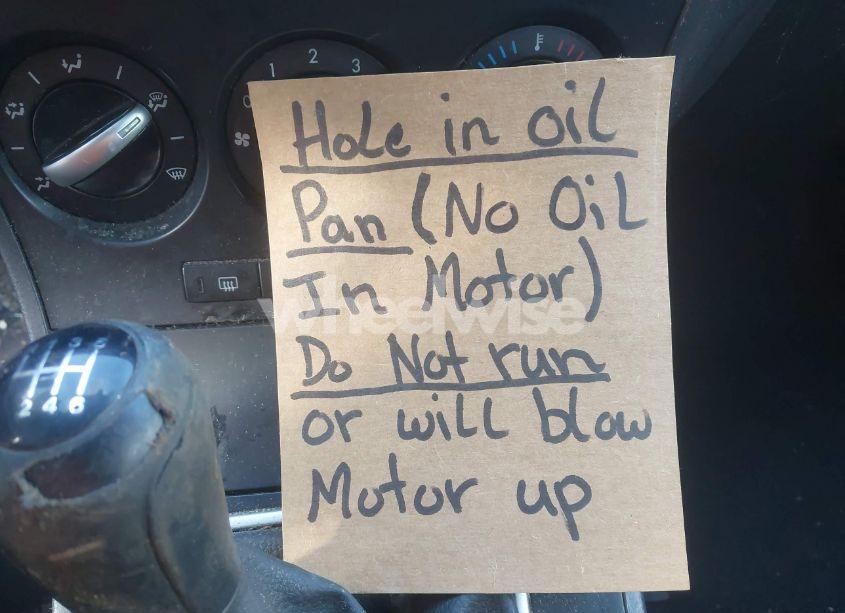 1 2 3
0
Hole in oil
Pan (No Oil
In Motor)
wheelwise
Do Not run
or will blow
Motor up
3 5
2 4 6